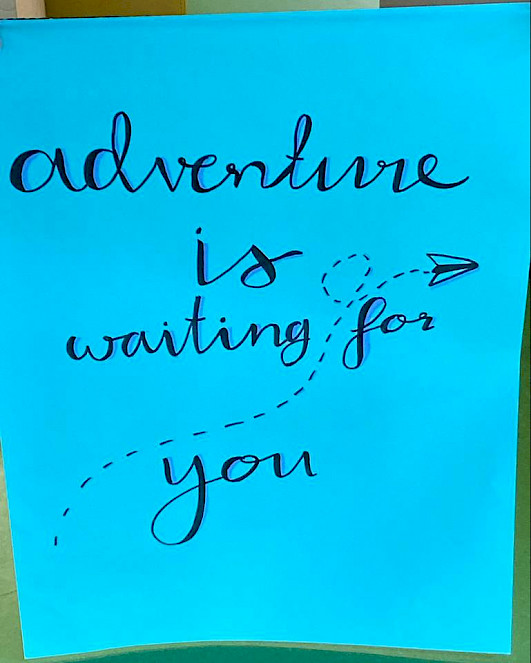 adventure
is
waiting for
you